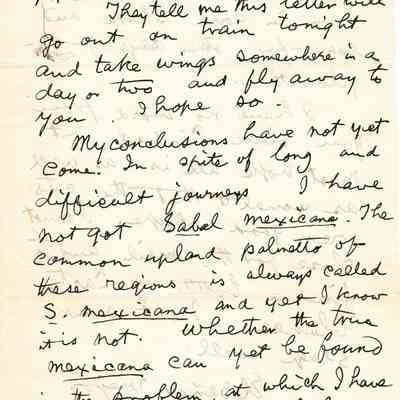 They tell me this letter will
go out on train tonight
and take wings somewhere in a
day or two and fly away to
you. I hope so.
My conclusions have not yet
come. In spite of long and
difficult journeys I have
not got Sabal mexicana. The
common upland palmetto of
these regions is always called
S. mexicana and yet I know
it is not. Whether the true
mexicana can yet be found
is the problem at which I have